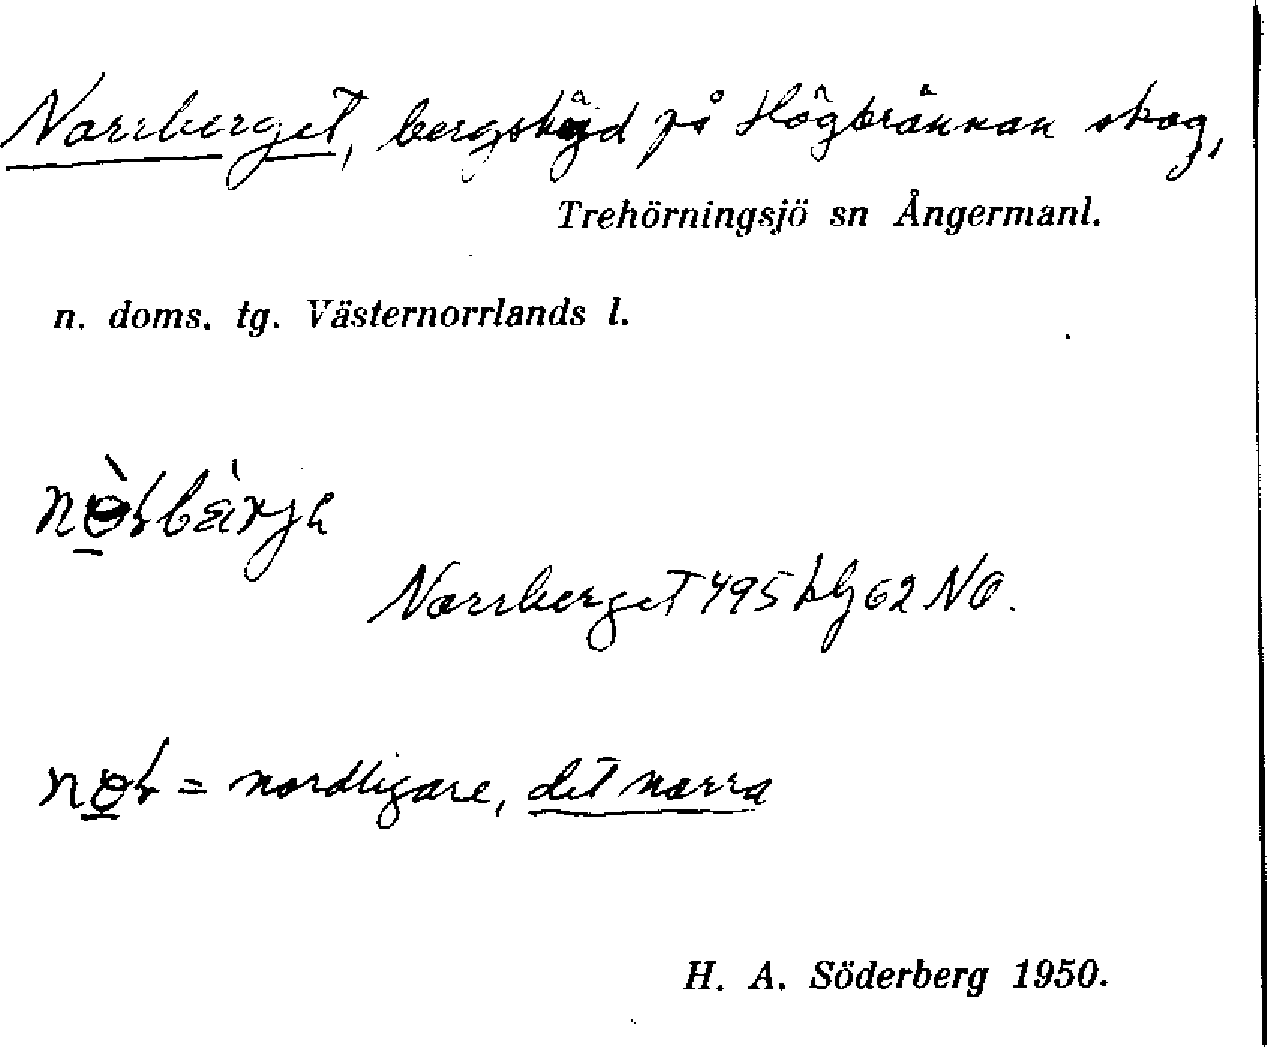 Norrberget, bergshöjd på Högbrännan skog,
Trehörningsjö sn Ångermanl.
n. doms. tg. Västernorrlands l.
Norrberget 495 hlj 62 NO.
= nordligare, det norra
H. A. Söderberg 1950.